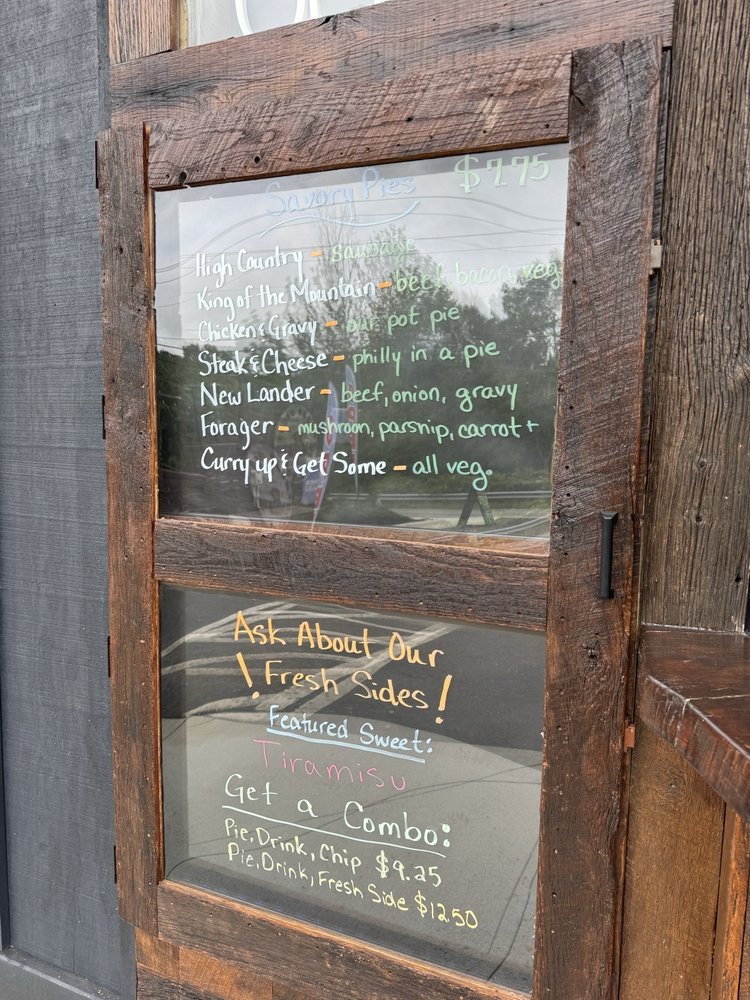 Savory Pies $7.75
High Country - sausage
King of the Mountain - beef, bacon, veg
Chicken & Gravy - our pot pie
Steak & Cheese - philly in a pie
New Lander - beef, onion, gravy
Forager - mushroom, parsnip, carrot +
Curry up & Get Some - all veg.
Ask About Our
! Fresh Sides!
Featured Sweet:
Tiramisu
Get a Combo:
Pie, Drink, Chip $9.25
Pie, Drink, Fresh Side $12.50